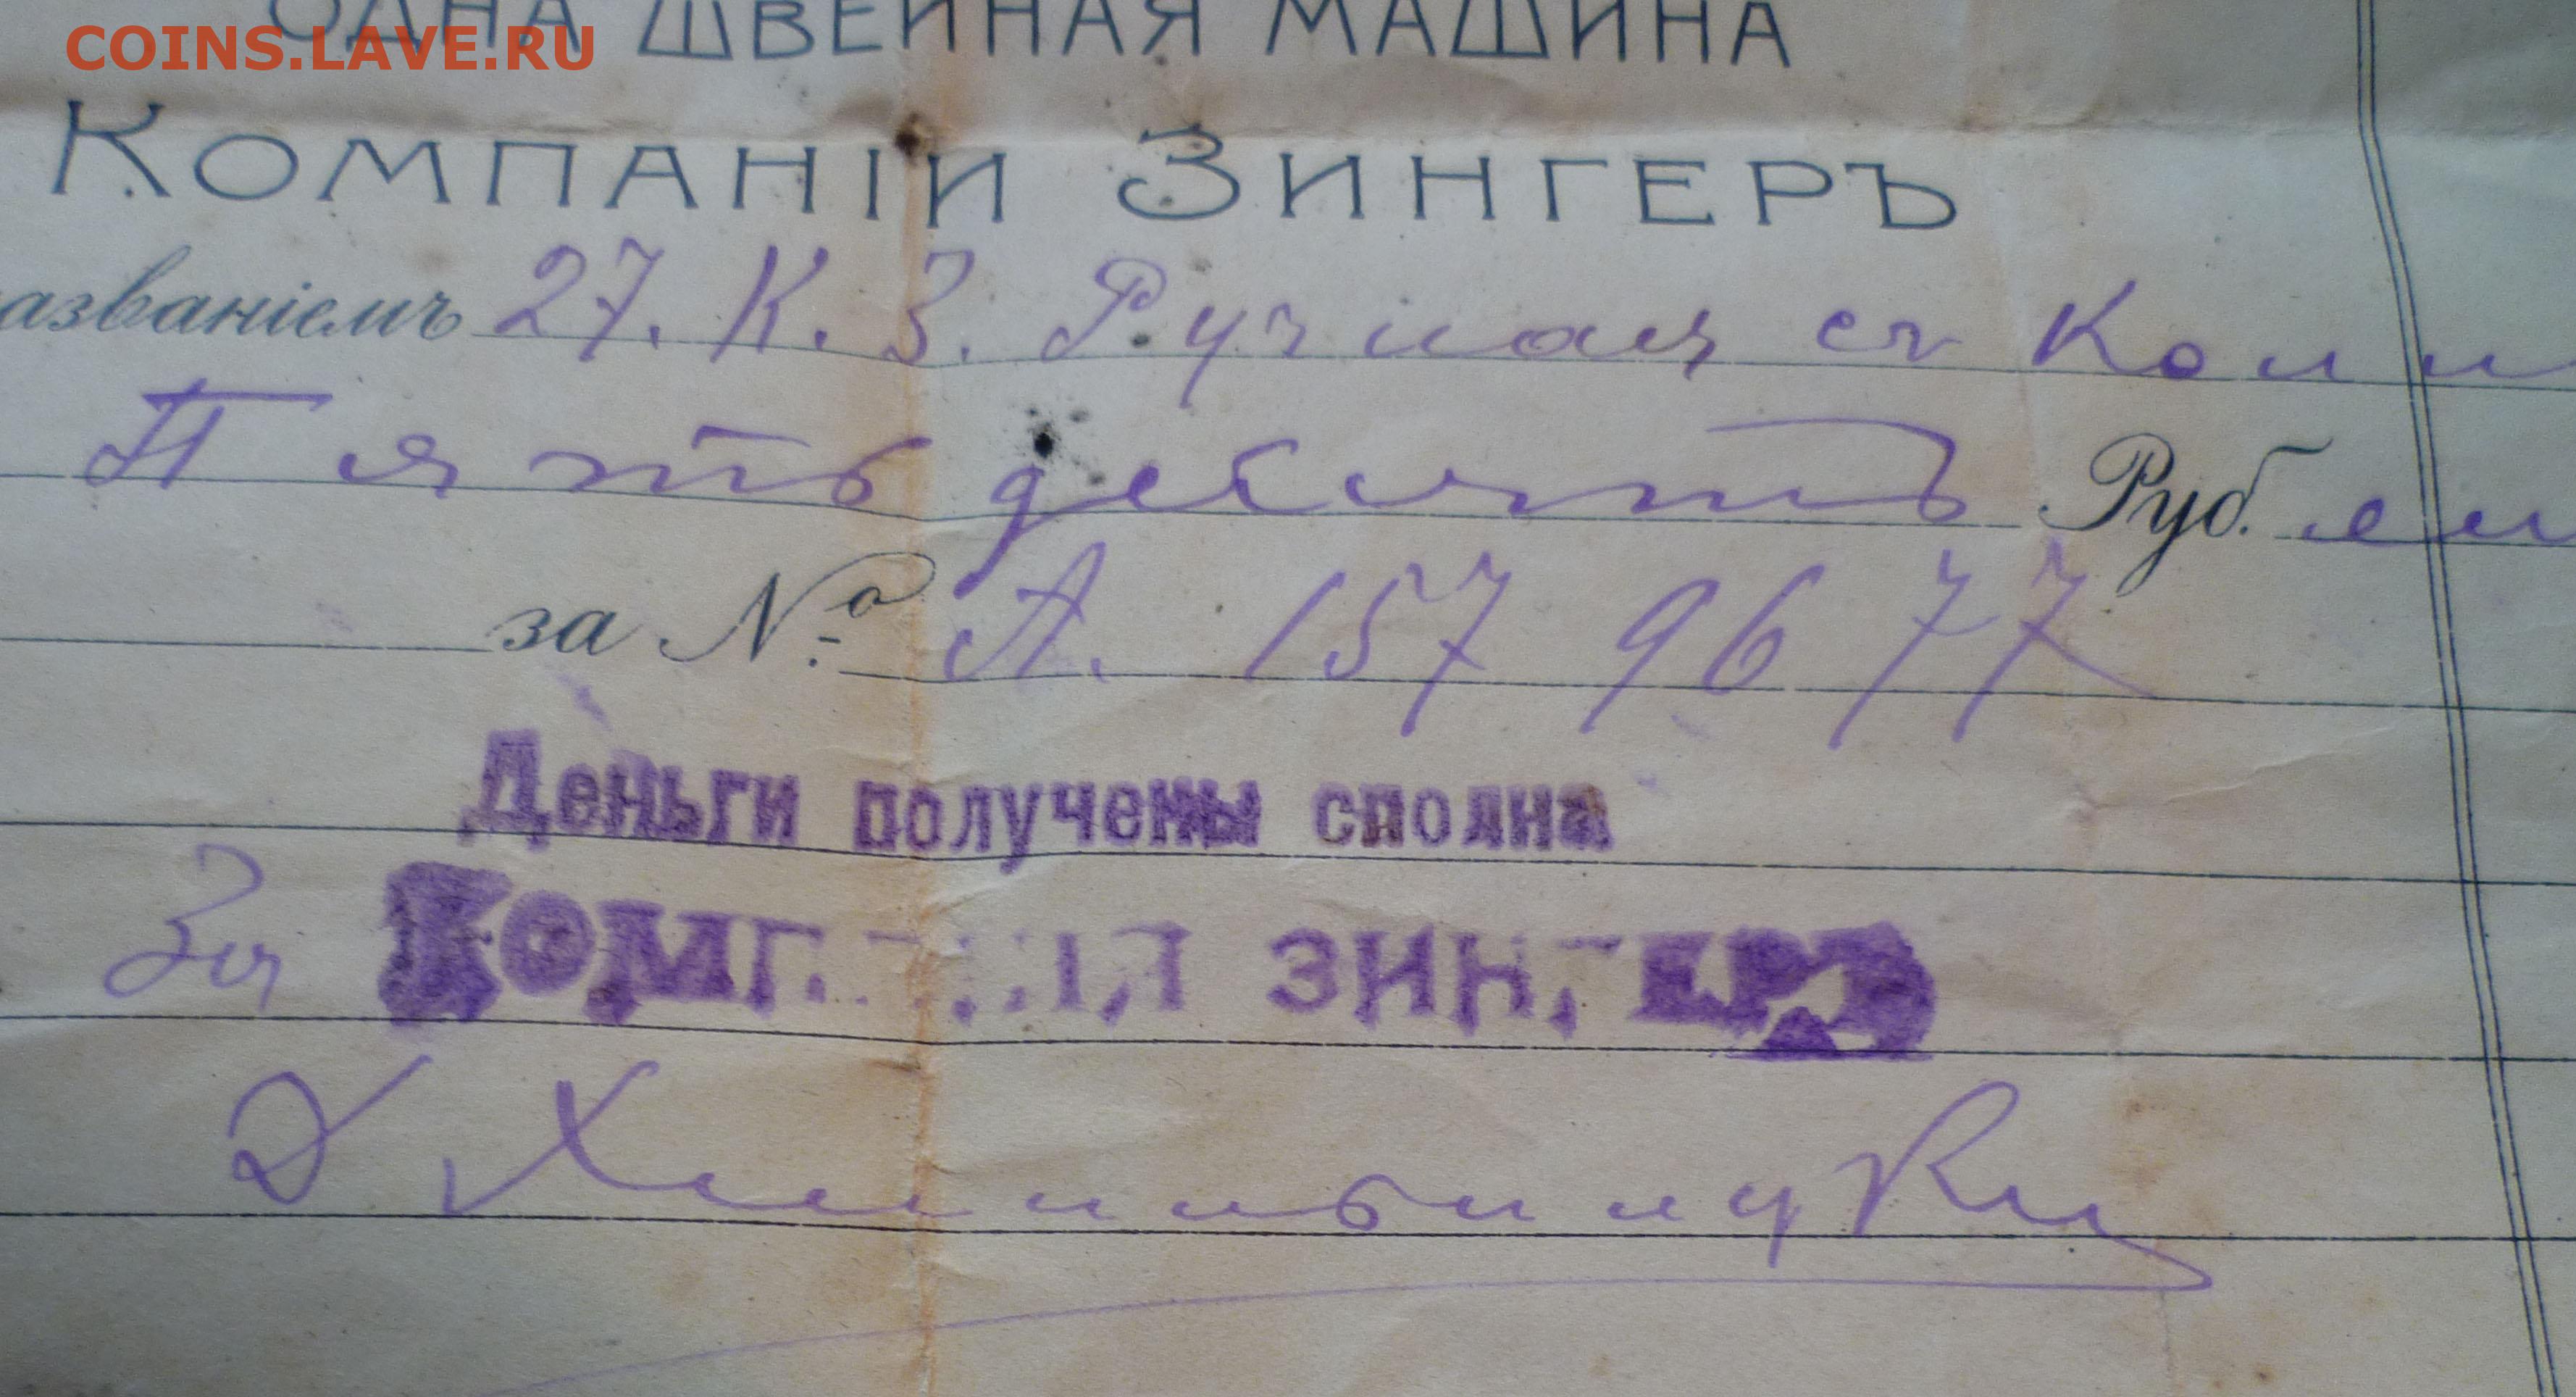 COINS.LAVE.RU
ОДНА ШВЕЙНАЯ МАШИНА
КОМПАНІИ ЗИНГЕРЪ
азваніемъ 27. К. 3. Ручная съ Колп
Пятьдесятъ Рублей
за № А. 1579677
Деньги получены сполна
За КОМПАНІЯ ЗИНГЕРЪ